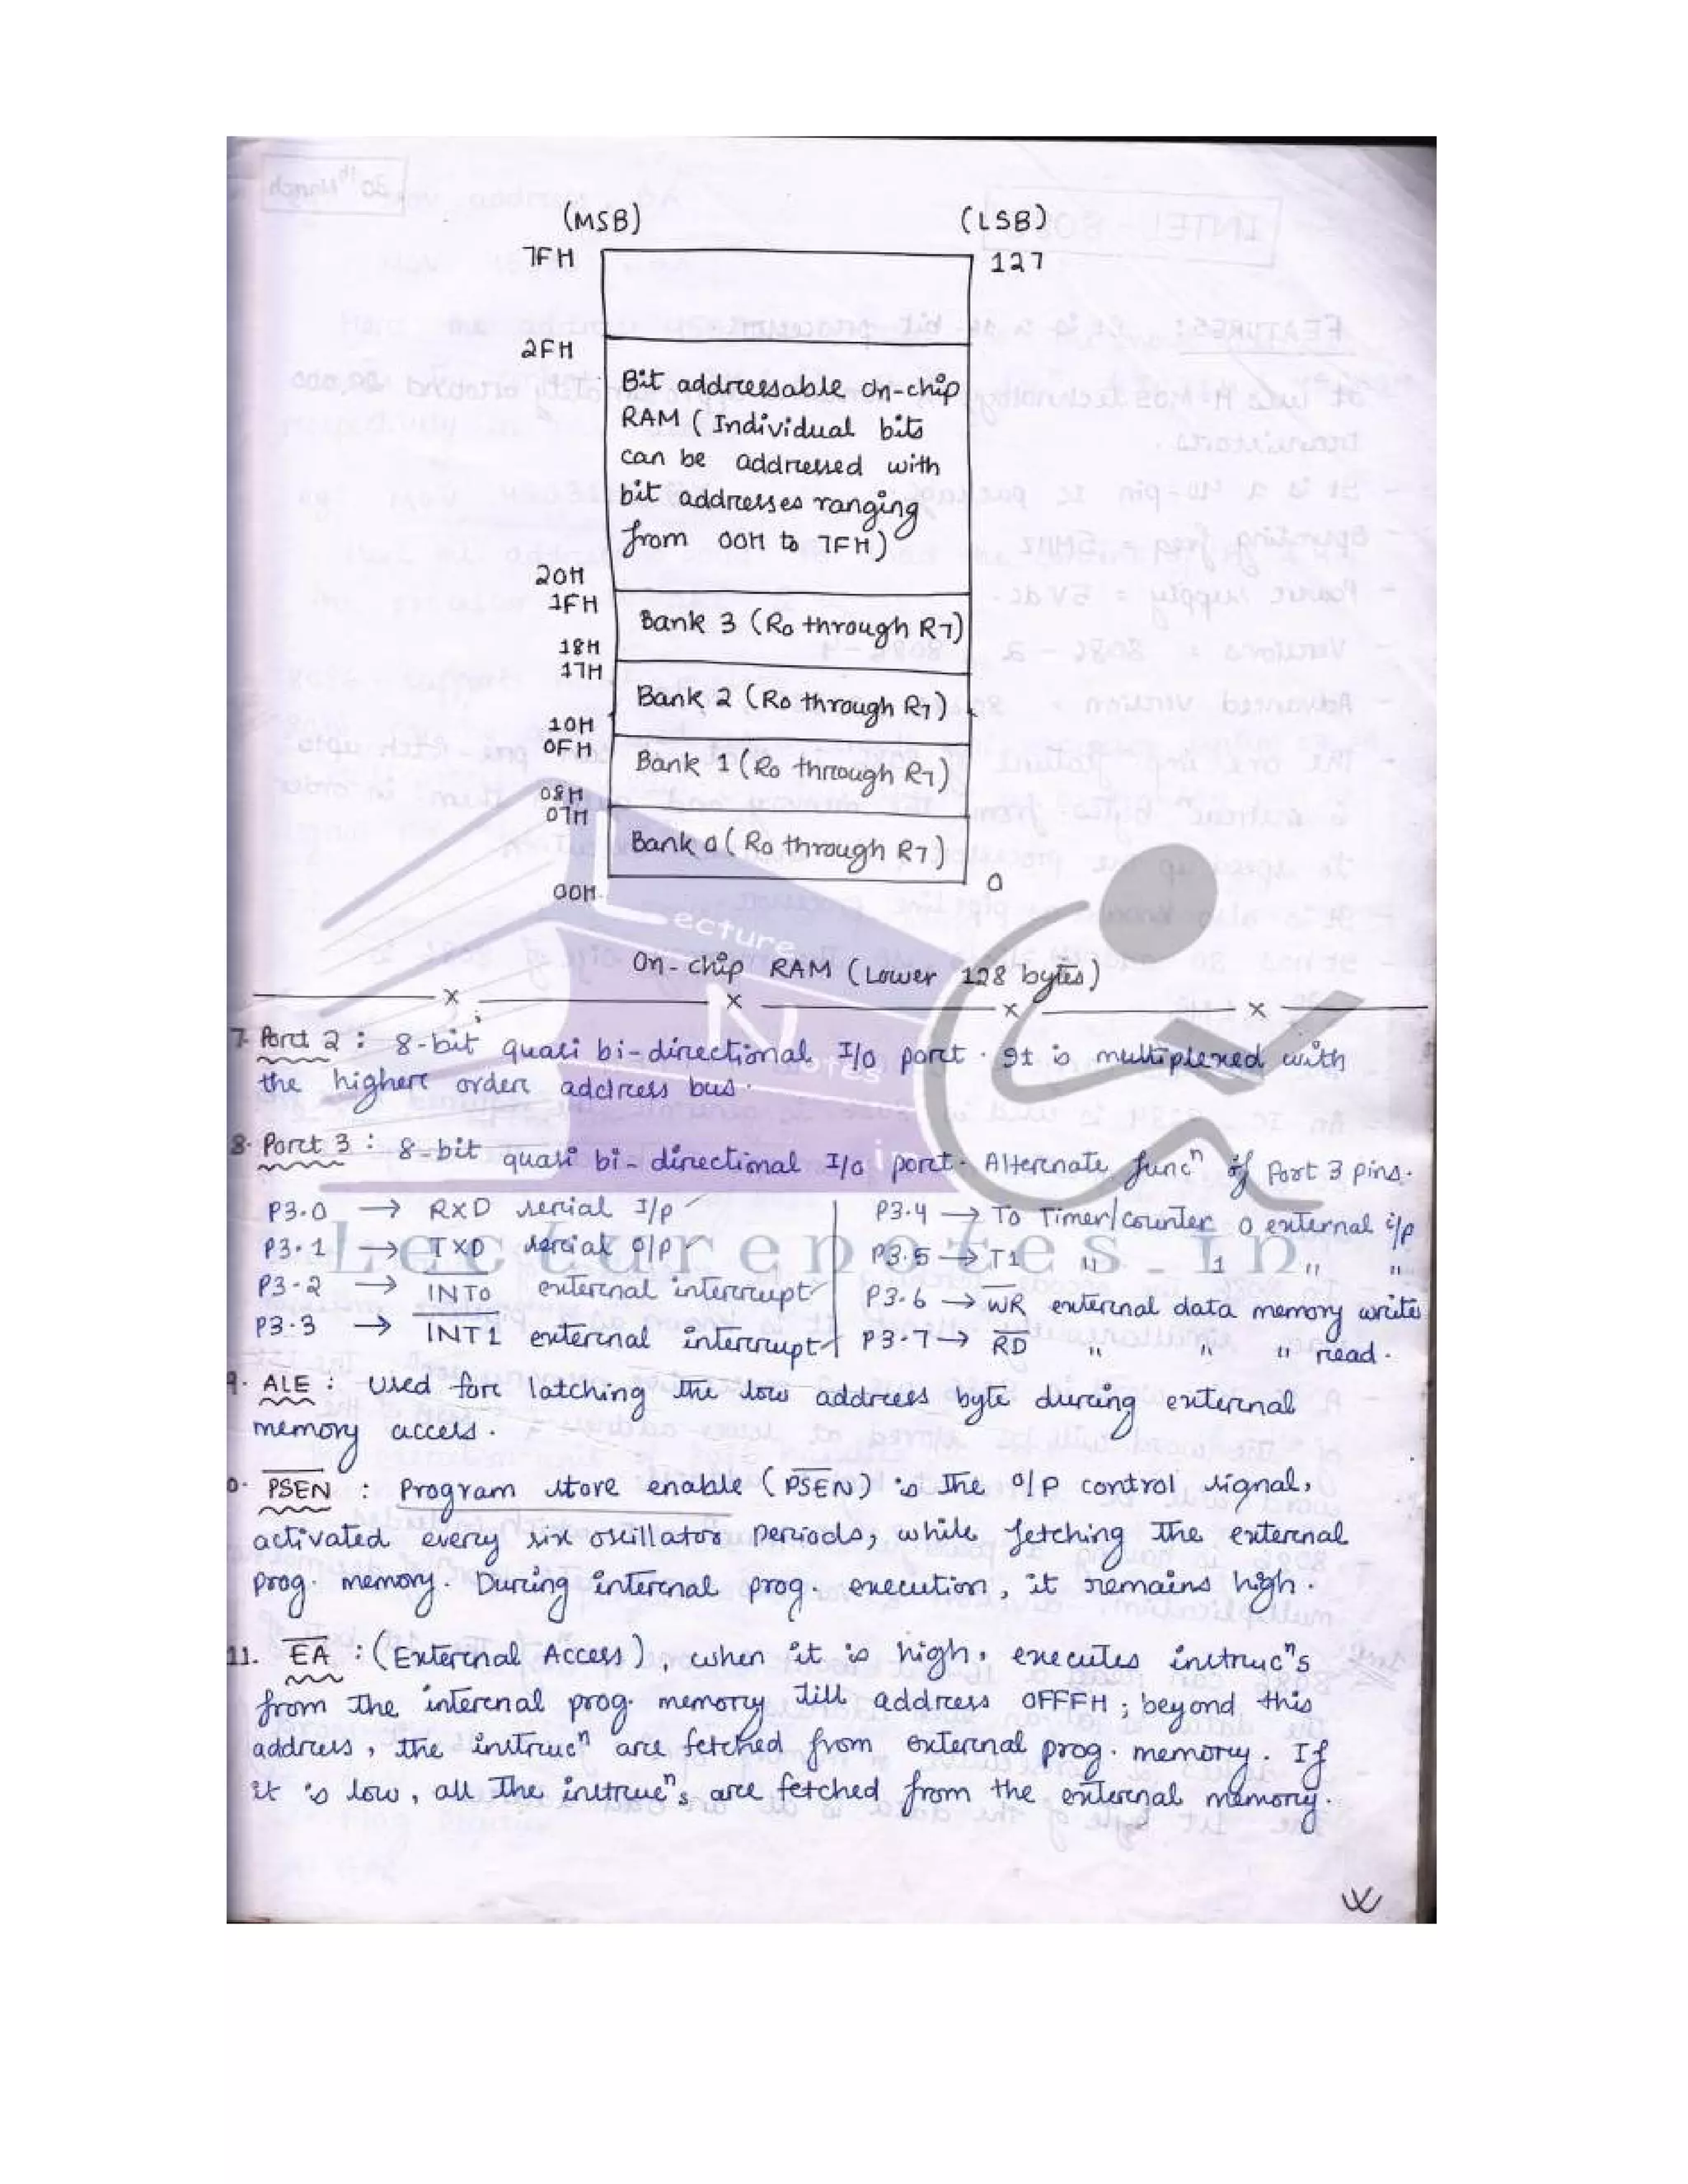 (MSB) (LSB)
7FH 127
2FH
Bit addressable on-chip
RAM ( Individual bits
can be addressed with
bit addresses ranging
from 00H to 7FH)
20H
1FH
Bank 3 (R0 through R7)
18H
17H
Bank 2 (R0 through R7)
10H
0FH
Bank 1 (R0 through R7)
08H
07H
Bank 0 ( R0 through R7)
00H 0
On-chip RAM (Lower 128 bytes)
x x x x
7. Port 2 : 8-bit quasi bi-directional I/o port. It is multiplexed with
the higher order address bus.
8. Port 3 : 8-bit quasi bi-directional I/o port. Alternate funcⁿ of Port 3 pins.
P3.0 → RXD serial I/p P3.4 → T0 Timer/counter 0 external i/p
P3.1 → TXD serial o/p P3.5 → T1 " 1 " "
P3.2 → I̅N̅T̅0̅ external interrupt P3.6 → W̅R̅ external data memory write
P3.3 → I̅N̅T̅1̅ external interrupt P3.7 → R̅D̅ " " " read.
9. ALE : Used for latching the low address byte during external
memory access.
0. P̅S̅E̅N̅ : Program store enable (P̅S̅E̅N̅) is the o/p control signal,
activated every six oscillator periods, while fetching the external
prog. memory. During internal prog. execution, it remains high.
11. E̅A̅ : (External Access), when it is high, executes instrucⁿs
from the internal prog. memory till address 0FFFH ; beyond this
address, the instrucⁿ are fetched from external prog. memory. If
it is low, all the instrucⁿs are fetched from the external memory.
Lecture
Notes
in
Lecturenotes.in